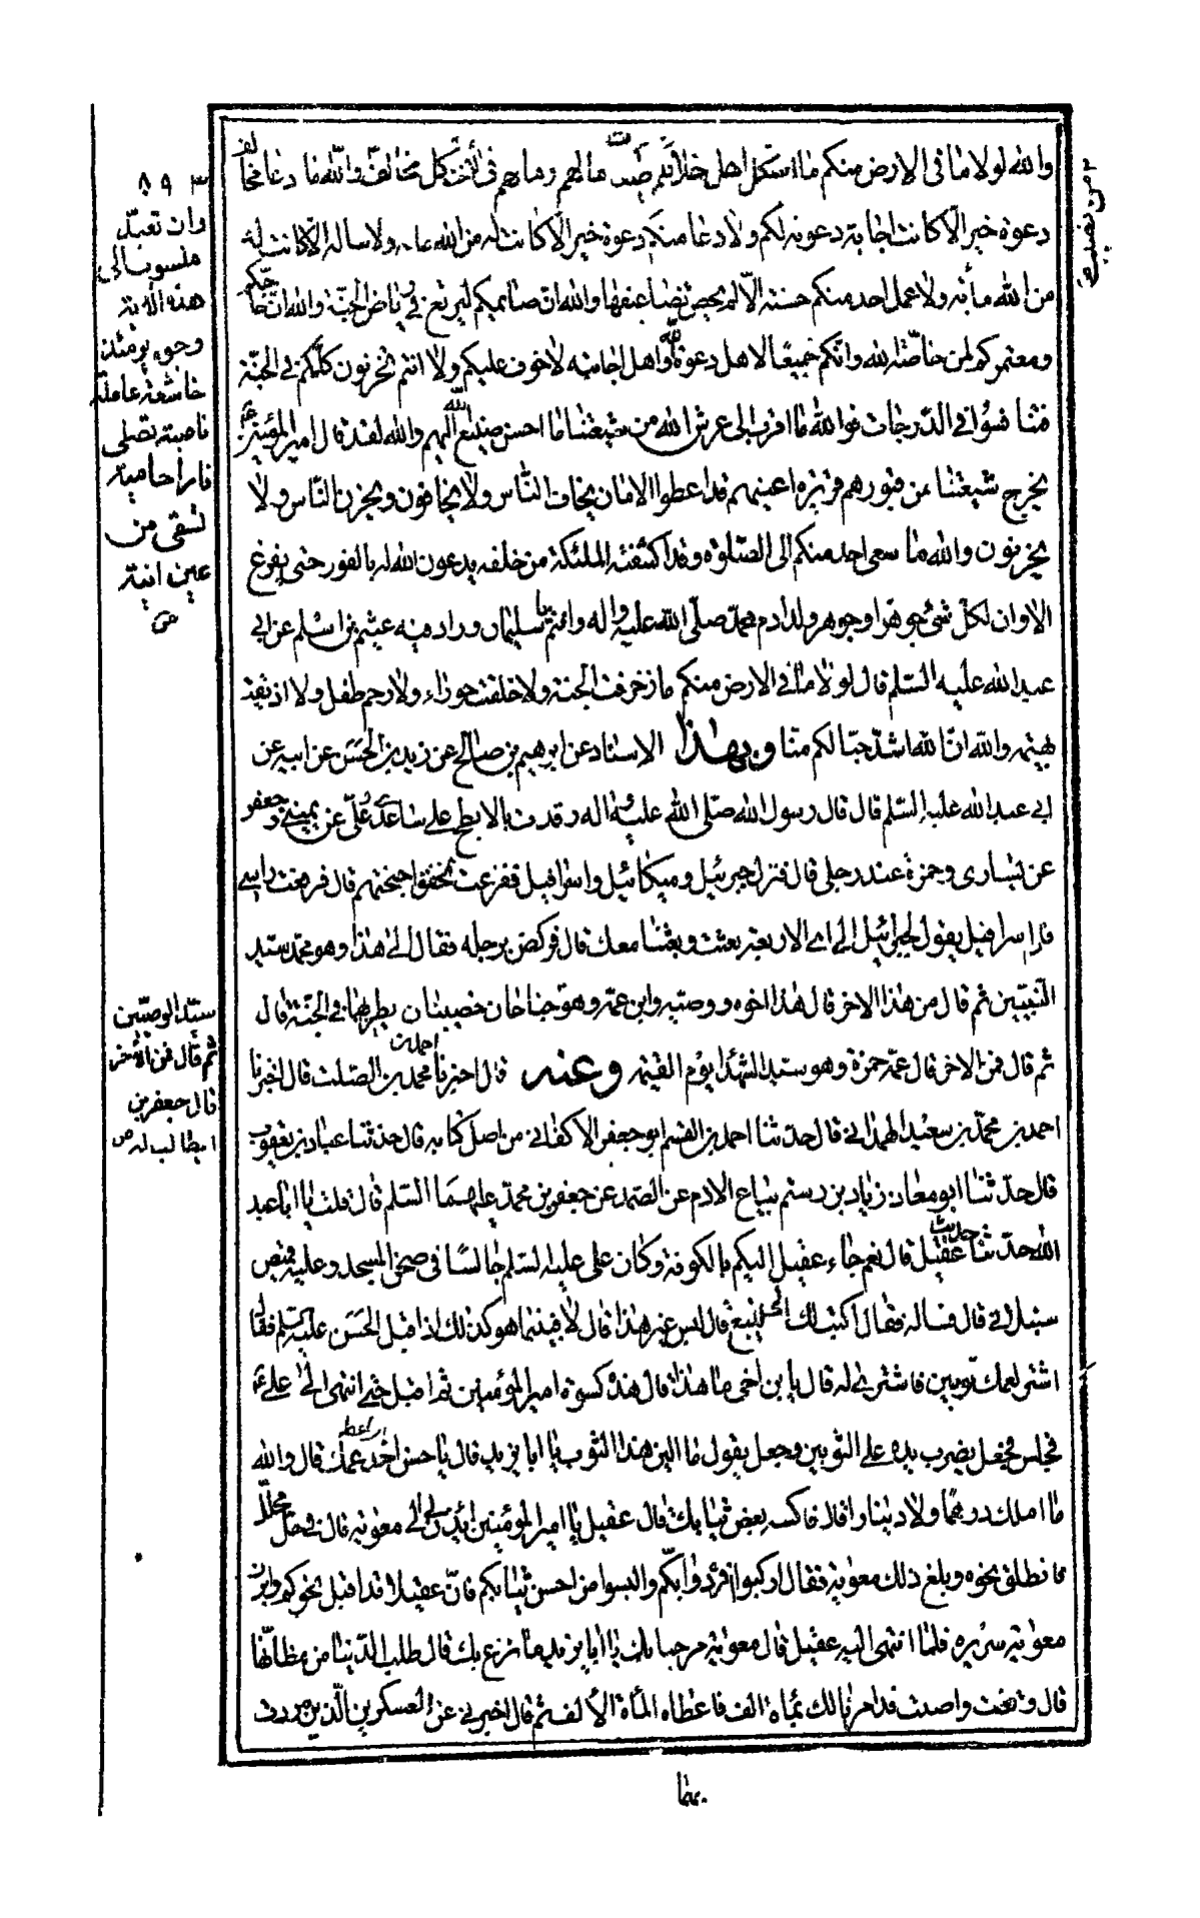 والله لولا ما فى الارض منكم ما استكمل اهل خلافكم طيبات مالهم ومالهم فى الآخرة كل مخالف والله ما دعا مخالف
دعوة خير الا كانت اجابة دعوته لكم ولا دعا منكم دعوة خير الا كانت له من الله مائة ولا ساله الا كانت له
من الله مأته ولا عمل احد منكم حسنة الا لم يحص تضاعيفها والله ان صائمكم ليرتع فى رياض الجنة والله ان حاجكم
ومعتمركم لمن خاصة الله وانكم جميعا لاهل دعوة الله واهل اجابته لا خوف عليكم ولا انتم تحزنون كلكم فى الجنة
فتنافسوا فى الدرجات فوالله ما اقرب الى عرش الله من شيعتنا ما احسن صنيع الله اليهم والله لقد قال امير المؤمنين ع
يخرج شيعتنا من قبورهم قريرة اعينهم قد اعطوا الامان يخاف الناس ولا يخافون ويحزن الناس ولا
يحزنون والله ما سعى احد منكم الى الصلوة وقد اكتنفته الملئكة من خلفه يدعون الله له بالفوز حتى يفرغ
الا وان لكل شئ جوهرا وجوهر ولد ادم محمد صلى الله عليه واله وانتم يا سليمان وزاد فيه عيثم بن اسلم عن ابى
عبد الله عليه السلم قال لولا ما فى الارض منكم ما زخرفت الجنة ولا خلقت حوراء ولا رحم طفل ولا اذيقت
بهيمة والله ان الله اشد حبا لكم منا وبهذا الاسناد عن ابرهيم بن صالح عن زيد بن الحسن عن ابيه عن
ابى عبد الله عليه السلم قال قال رسول الله صلى الله عليه واله رقدت بالابطح على ساعدى وعلى عن يمينى وجعفر
عن يسارى وحمزة عند رجلى قال فنزل جبرئيل وميكائيل واسرافيل ففزعت لخفق اجنحتهم قال فرفعت راسى
فاذا اسرافيل يقول لجبرائيل الى اى الاربعة بعثت وبعثنا معك قال فركض برجله فقال الى هذا وهو محمد سيد
النبيين ثم قال من هذا الاخر قال هذا اخوه ووصيه وابن عمه وهو جناحان خضيبان يطير بهما فى الجنة قال
ثم قال فمن الاخر قال عمه حمزة وهو سيد الشهداء يوم القيمة وعنه قال اخبرنا احمد بن محمد بن الصلت قال اخبرنا
احمد بن محمد بن سعيد الهمدانى قال حدثنا احمد بن القسم ابو جعفر الاكفانى من اصل كتابه قال حدثنا عباد بن يعقوب
قال حدثنا ابو معاذ زياد بن رستم بياع الادم عن الصمد عن جعفر بن محمد عليهما السلم قال قلت يا ابا عبد
الله حدثنا حديث عقيل قال نعم جاء عقيل اليكم بالكوفة وكان على عليه السلم جالسا فى صحن المسجد وعليه قميص
سنبلانى قال فساله فقال اكتب لك الى ينبع قال ليس غير هذا قال لا فبينما هو كذلك اذ اقبل الحسن عليه السلم فقال
اشتر لعمك ثوبين فاشترى له قال يا بن اخى ما هذا قال هذه كسوة امير المؤمنين ثم اقبل حتى انتهى الى على ع
فجلس فجعل يضرب يده على الثوبين وجعل يقول ما الين هذا الثوب يا ابا يزيد قال يا حسن اخد عمك قال والله
ما املك درهما ولا دينارا قال فاكسه بعض ثيابك قال عقيل يا امير المؤمنين ائذن لى الى معوية قال فى حل محلل
فانطلق نحوه وبلغ ذلك معوية فقال اركبوا افره دوابكم والبسوا من احسن ثيابكم فان عقيلا قد اقبل نحوكم وابرز
معوية سريره فلما انتهى اليه عقيل قال معوية مرحبا بك يا ابا يزيد ما نزع بك قال طلب الدنيا من مظانها
قال وفقت واصبت قد امرنا لك بمأة الف فاعطاه المأة الالف ثم قال اخبرنى عن العسكرين الذين مررت
بهما
٨٩٣
وان تعبد
منسوب الى
هذه الاية
وجوه يومئذ
خاشعة عاملة
ناصبة تصلى
نارا حامية
تسقى من
عين انية
سيد الوصيين
ثم قال فمن الآخر
قال جعفر بن
ابيطالب له ص